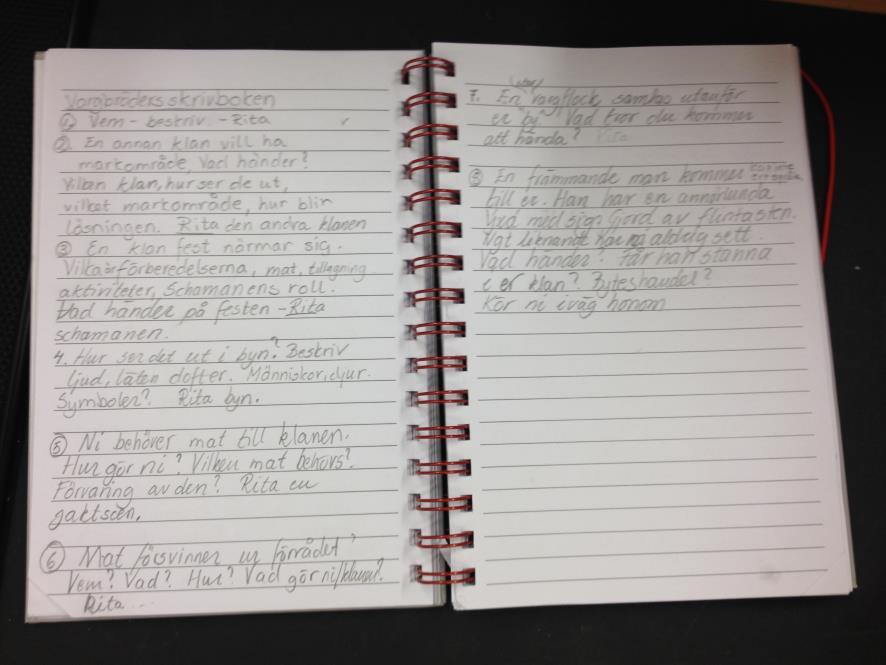 Vargbröders skrivboken
① Vem - beskriv. - Rita
② En annan klan vill ha
markområde, Vad händer?
Vilken klan, hur ser de ut,
vilket markområde, hur blir
lösningen. Rita den andra klanen
③ En klan fest närmar sig.
Vilka är förberedelserna, mat, tillagning
aktiviteter, Schamanens roll.
Vad händer på festen - Rita
schamanen.
4. Hur ser det ut i byn? Beskriv
ljud, läten dofter. Människor, djur.
Symboler? Rita byn.
⑤ Ni behöver mat till klanen.
Hur gör ni? Vilken mat behövs?
Förvaring av den? Rita en
jaktscen.
⑥ Mat försvinner ur förrådet
Vem? Vad? Hur? Vad gör ni/klanen?
Rita...
(stor)
7. En vargflock samlas utanför
er "by" Vad tror du kommer
att hända? Rita
En främmande man kommer
till er. Han har en annorlunda
med sig. Gjord av flintasten.
Ngt liknande har ni aldrig sett.
Vad händer? Får han stanna
i er klan? Byteshandel?
Kör ni iväg honom